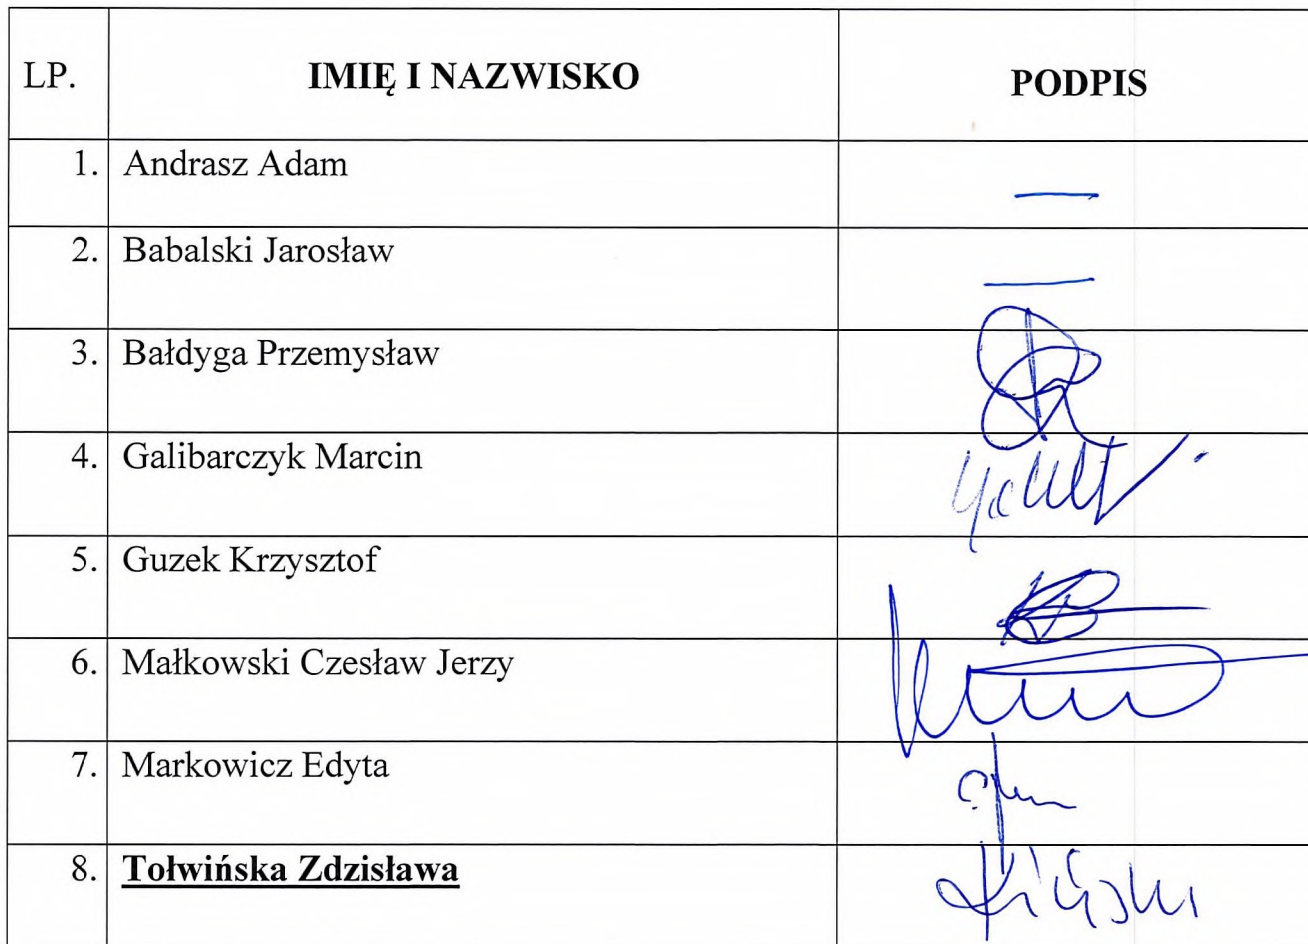 LP. IMIĘ I NAZWISKO PODPIS
1. Andrasz Adam —
2. Babalski Jarosław —
3. Bałdyga Przemysław
4. Galibarczyk Marcin
5. Guzek Krzysztof
6. Małkowski Czesław Jerzy
7. Markowicz Edyta
8. Tołwińska Zdzisława